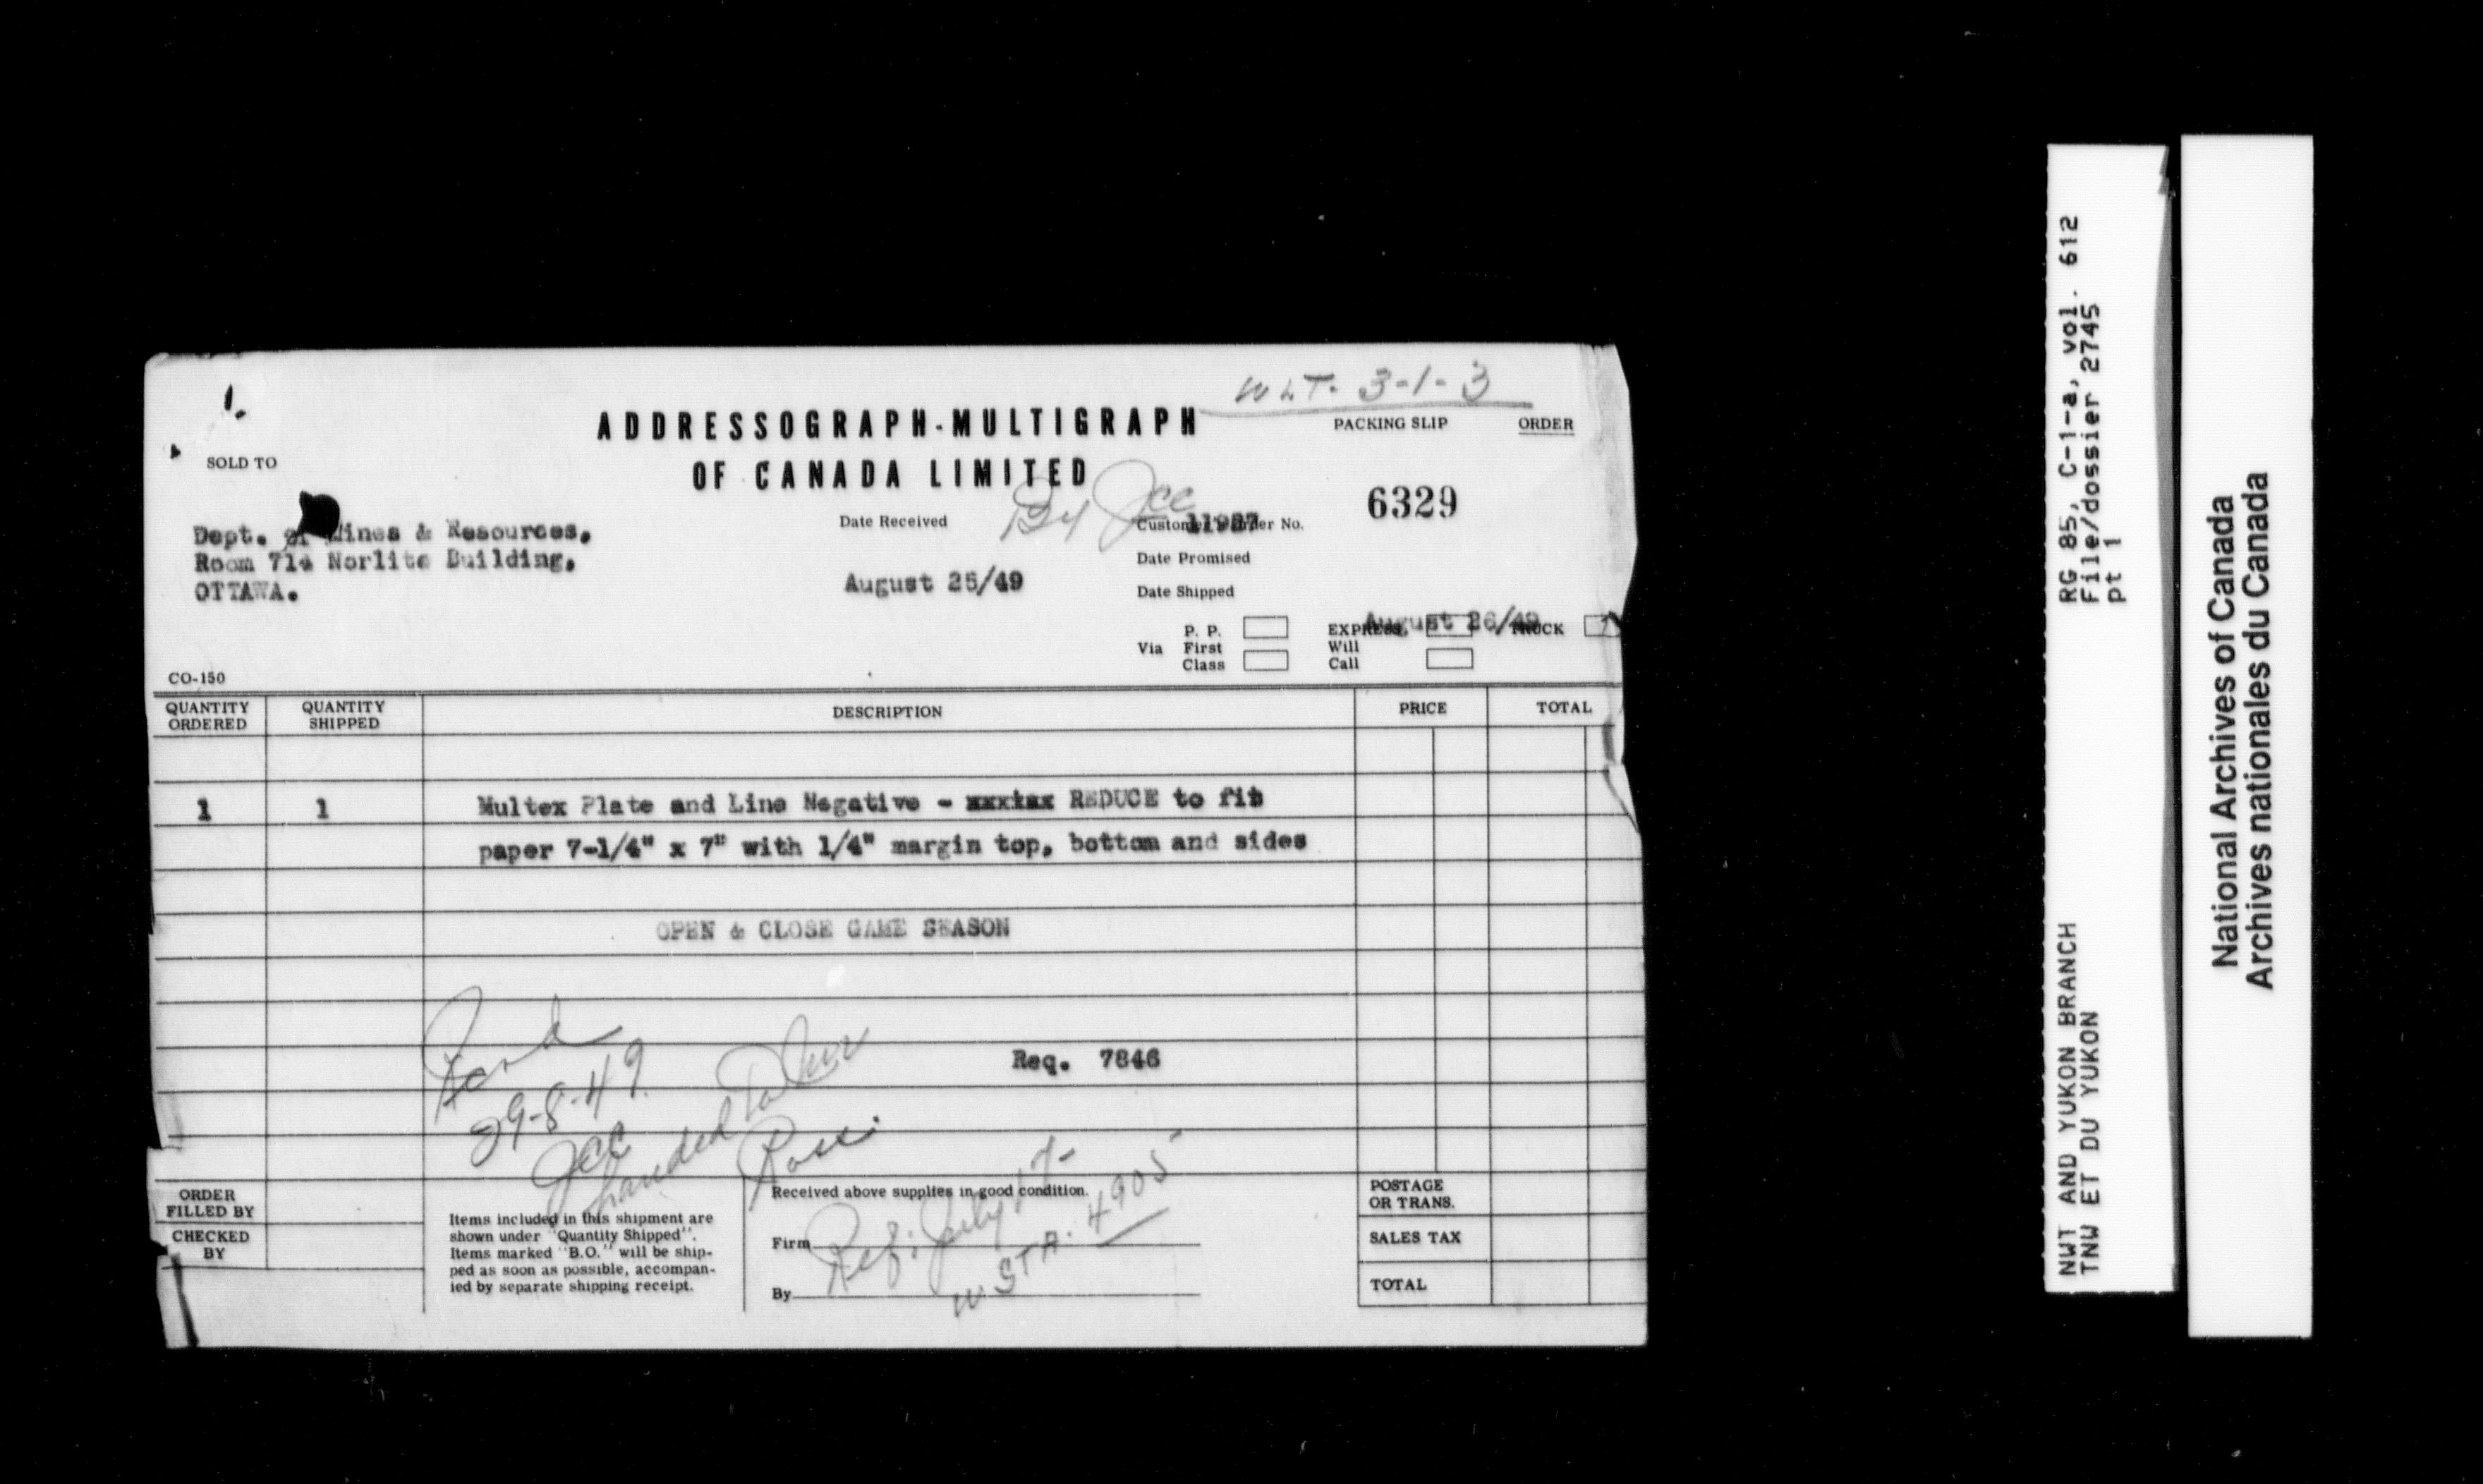 1.
W L T. 3-1-3
ADDRESSOGRAPH-MULTIGRAPH
OF CANADA LIMITED
PACKING SLIP ORDER
SOLD TO
6329
By Jcc
Dept. of Mines & Resources,
Room 714 Norlite Building,
OTTAWA.
Date Received
August 25/49
Customer's Order No.
11927
Date Promised
Date Shipped
August 26/49
Via P. P. EXPRESS TRUCK
First Class Will Call
CO-150
QUANTITY ORDERED QUANTITY SHIPPED DESCRIPTION PRICE TOTAL
1 1 Multex Plate and Line Negative - xxxxxx REDUCE to fit
paper 7-1/4" x 7" with 1/4" margin top, bottom and sides
OPEN & CLOSE GAME SEASON
Req. 7846
29-8-49.
Jcc
handed
ORDER FILLED BY
CHECKED BY
Items included in this shipment are
shown under "Quantity Shipped".
Items marked "B.O." will be ship-
ped as soon as possible, accompan-
ied by separate shipping receipt.
Received above supplies in good condition.
Firm
By
Ref: July 17-
W. STA. 4905
POSTAGE OR TRANS.
SALES TAX
TOTAL
RG 85, C-1-a, vol. 612
File/dossier 2745
pt 1
NWT AND YUKON BRANCH
TNW ET DU YUKON
National Archives of Canada
Archives nationales du Canada